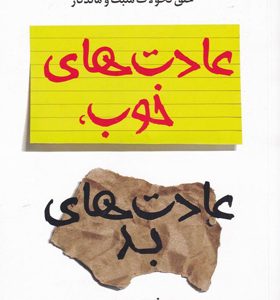 خلق تحولات مثبت و ماندگار
عادت‌های
خوب،
عادت‌های
بد